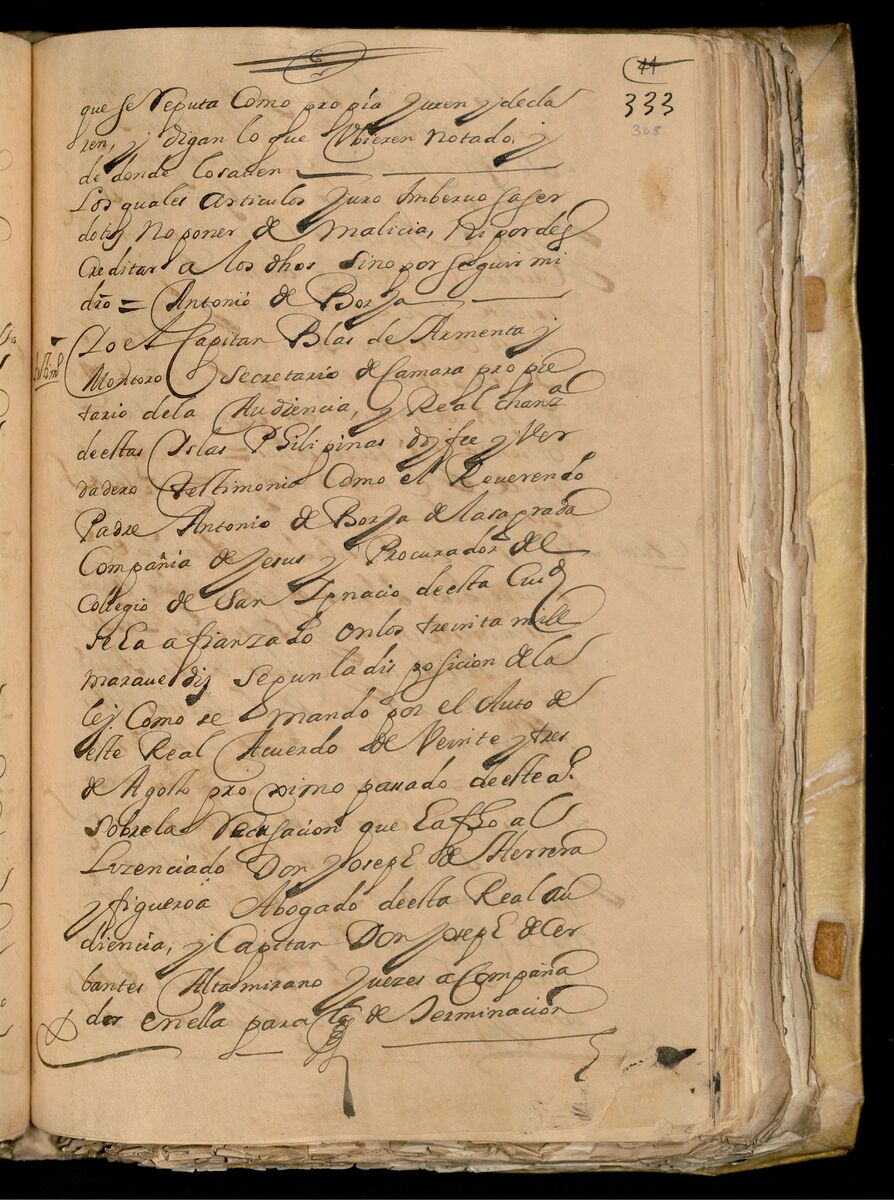 44
333
305
que se reputa Como propia Juren y decla
ren, y digan lo que Ubieren notado, y
de donde lo saven
Los quales Articulos Juro Inberuo saser
dotis No poner de Malicia, ni por des
Creditar a los dhos sino por seguir mi
dro = Antonio de Borja
Testimo
Yo el Capitan Blas de Armenta y
Montoro Secretario de Camara propie
tario dela Audiencia, y Real chanza
de estas Yslas Philipinas doy fee y Ver
dadero testimonio Como el Reverendo
Padre Antonio de Borja de la sagrada
Compañia de Jesus y Procurador del
Collegio de San Ignacio de esta Ciud
se ha afianzado en los treinta mill
maravedis segun la disposicion de la
ley Como se mando por el Auto de
este Real Acuerdo de Veinte y tres
de Agosto proximo pasado de este aº
sobre la recusacion que ha fho al
Lizenciado Don Joseph de Herrera
y figueroa Abogado de esta Real au
diencia, y Capitan Don Joseph de Cer
bantes Altamirano Juezes acompaña
dos en ella para la determinacion